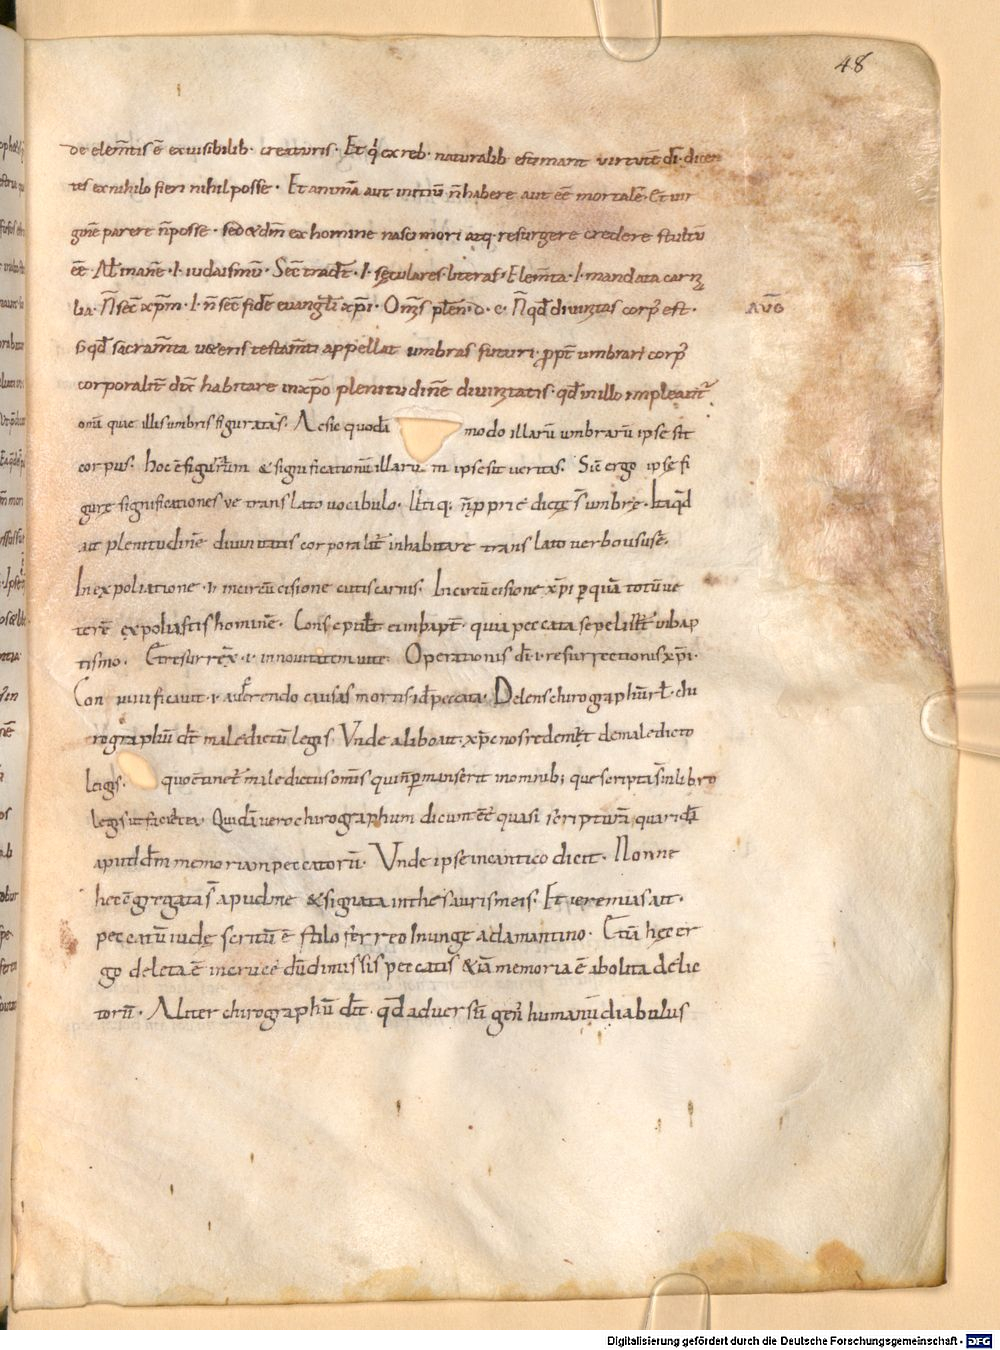 48
de elem̄tis ē ex uisibilib· creaturis· Et q́ ex reb· naturalib estimant uirtutē dī· dicen
tes ex nihilo fieri nihil posse· Et animā aut initiū n̄ habere aut eē mortalē· Et uir
ginē parere n̄ posse· sed & dn̄m ex homine nasci mori atq· resurgere credere stultū
eē iudaismū· Sec̄ tradit̄· ł· sęculares literas· Elem̄ta· ł· mandata carn
lia· N̄ sec̄ xp̄m· ł· n̄ sec̄ fidē euangl̄ii xp̄i· Om̄s plen· d· c· N̄ qd̄ diuinitas corp̄ est·
AUG
s· qd̄ sacram̄ta ueteris testam̄ti appellat umbras futuri· ppt̄ umbrarū corp̄
corporalit̄ dix̄ habitare in xp̄o plenitudinē diuinitatis· qd̄ in illo impleant̄
omīa quae illis umbris figurata s̄· Ac sic quodā modo illarū umbrarū ipse sit
corpus· hoc ē figurarum & significationū illarū ipse sit ueritas· Sic̄ ergo ipse fi
gurę significationes ue translato uocabulo· n̄ pprię dicte s̄ umbrę· Ita qd̄
ait plenitudinē diuinitatis corporalit̄ inhabitare translato uerbo usus ē·
In expoliatione· ł· in circūcisione cutis carnis· In circūcisione xp̄i p quā totū ue
terē expoliastis hominē· Consepulti ei in bapt̄· quia peccata sepelistis in bap
tismo· Et resurrex̄· ł· in nouitatem uitę· Operationis dī· ł· resurrectionis xp̄i·
Con uiuificauit· ł· auferendo causas mortis· id̄ peccata· Delens chirographū· chi
rographū dic̄ maledictū legis· Vnde alibi ait· xp̄c nos redemit de maledicto
legis· maledictus omīs qui n̄ pmanserit in omnib; que scripta s̄ in libro
legis ut faciat ea· Quidā uero chirographum dicunt eē quasi scripturā quandā
apud dn̄m memoriam peccatorū· Vnde ipse in cantico dicit· Nonne
hec cgregata s̄ apud me & signata in thesauris meis· Et ieremias ait·
peccatū iudę scriptū ē stilo ferreo In ungę adamantino· Etiā hęc er
go deleta ē in cruce dū dimissis peccatis & iā memoria ē abolita delic
torū· Aliter chirographū dic̄t· qd̄ aduersū gen̄ humanū diabulus
Digitalisierung gefördert durch die Deutsche Forschungsgemeinschaft - DFG